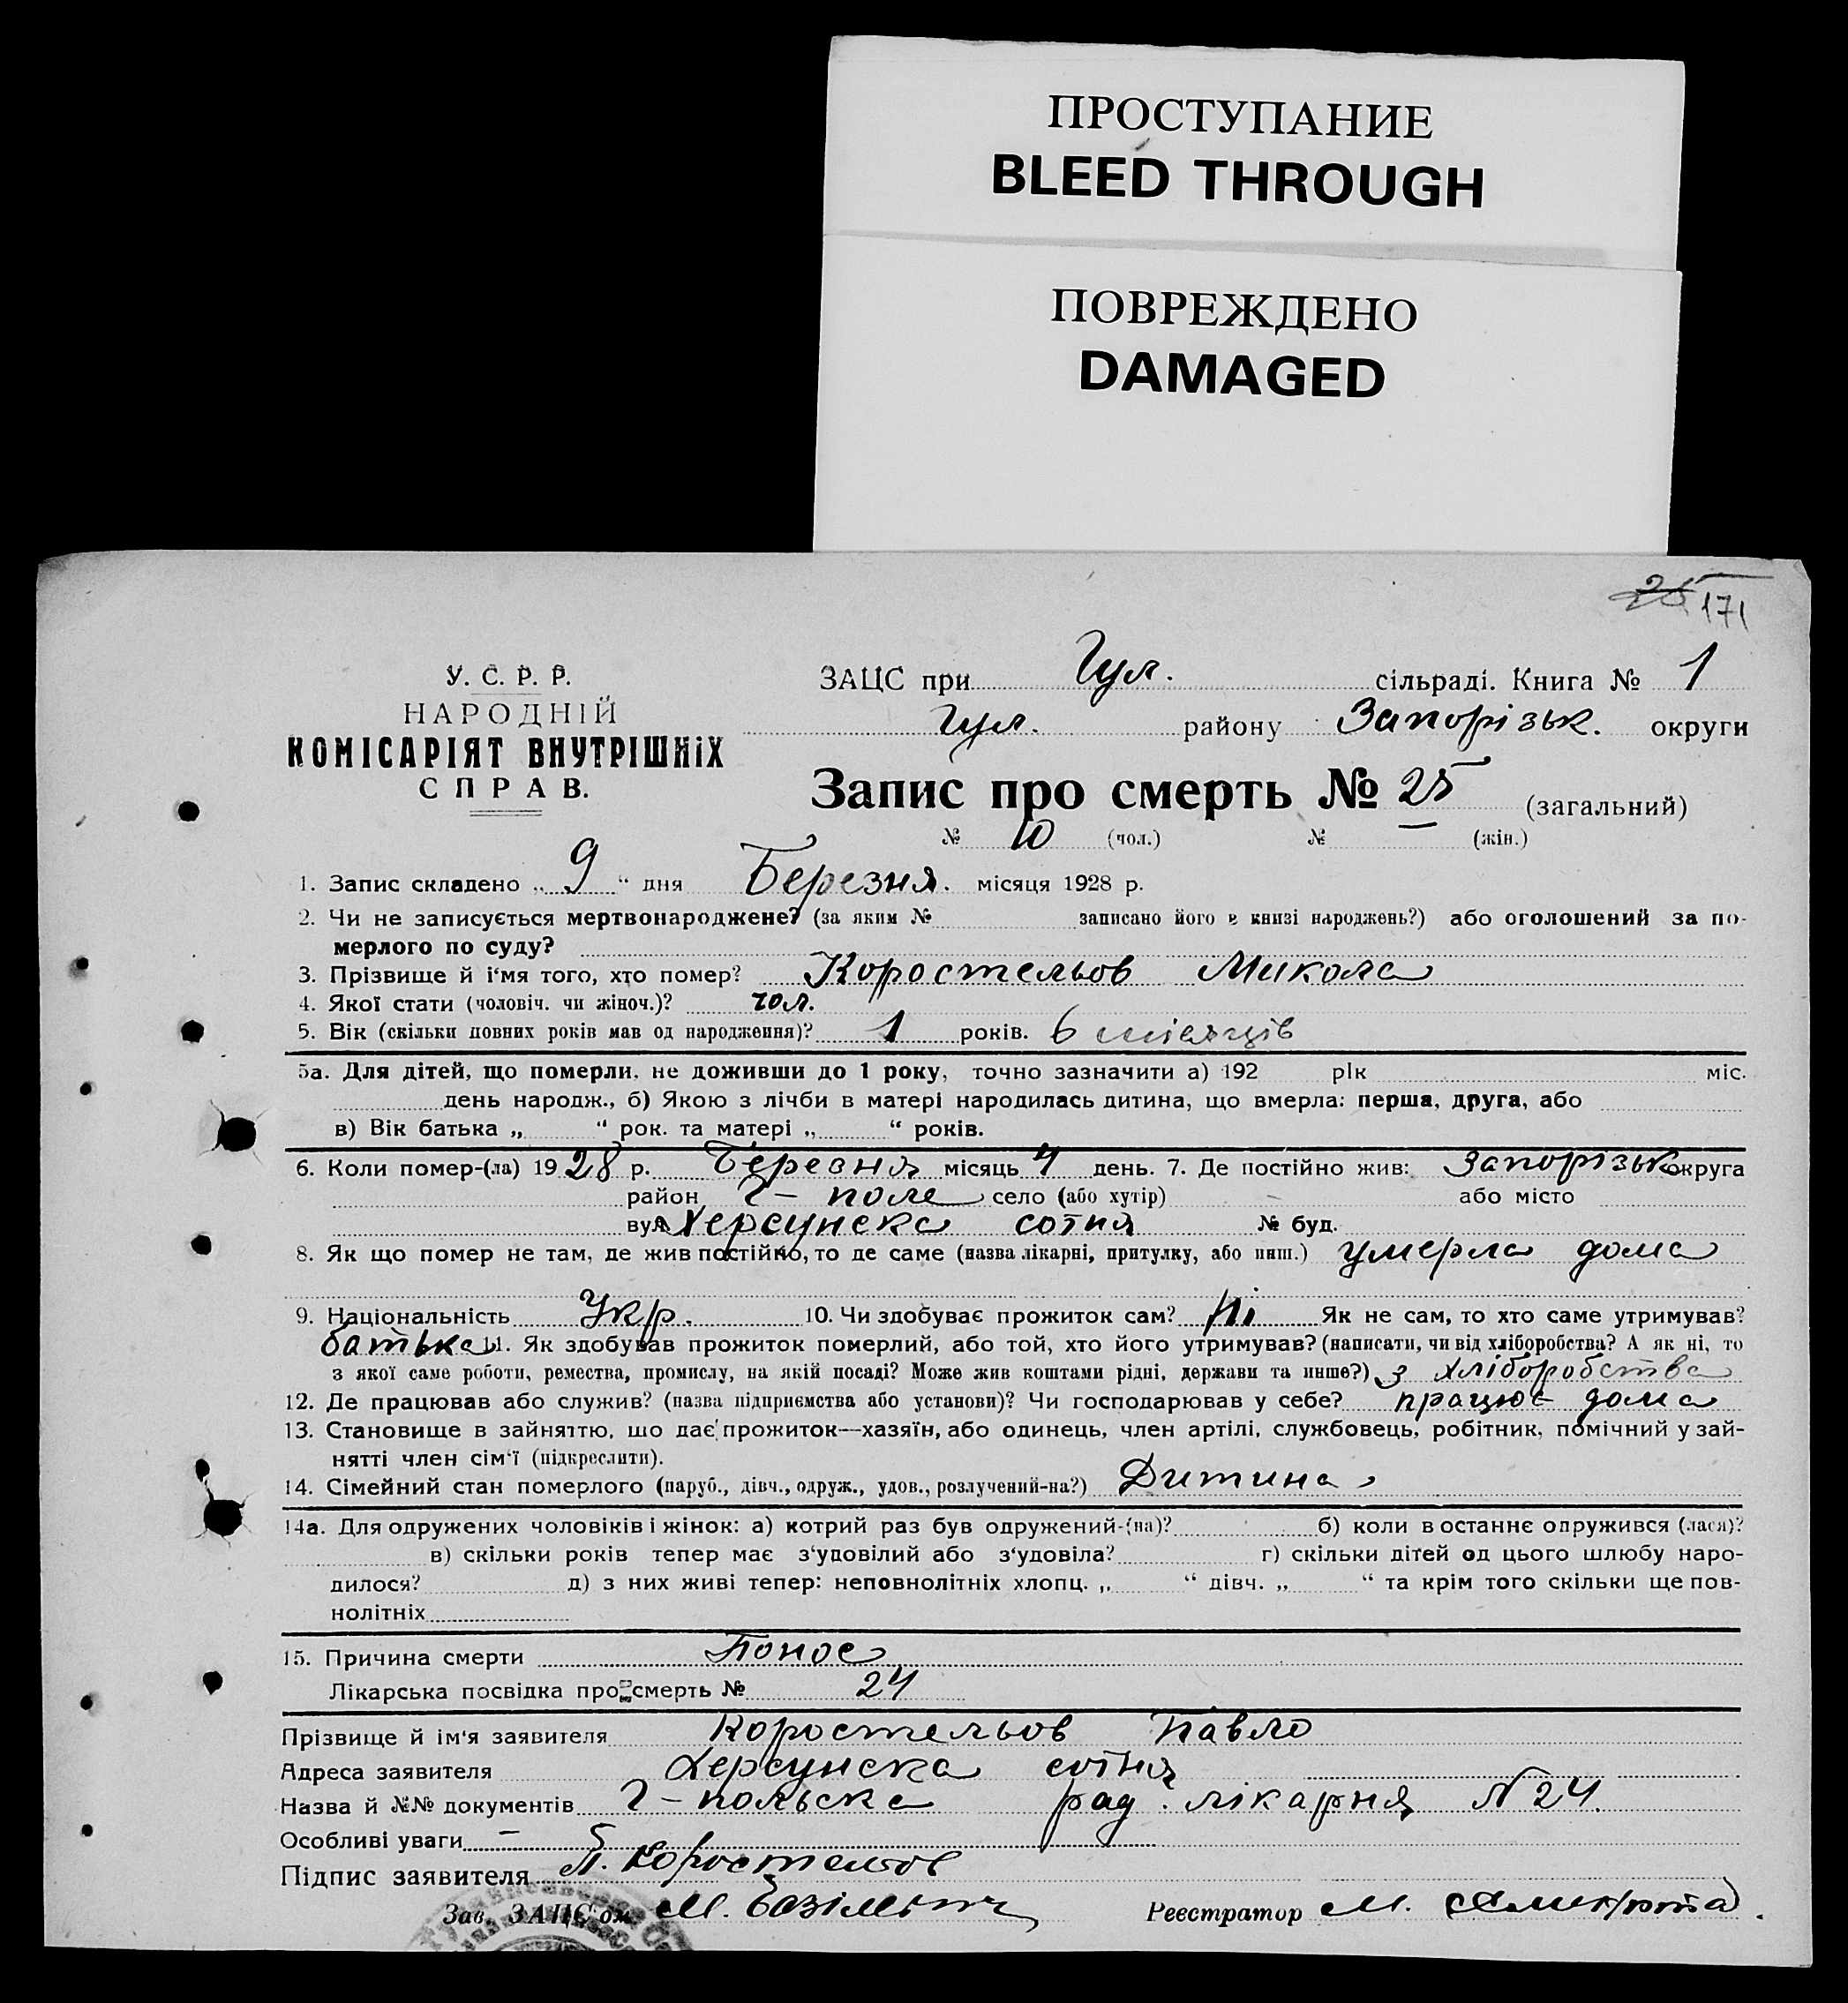 ПРОСТУПАНИЕ
BLEED THROUGH
ПОВРЕЖДЕНО
DAMAGED
25 171
У. С. Р. Р.
НАРОДНІЙ
КОМІСАРІЯТ ВНУТРІШНІХ
СПРАВ.
ЗАЦС при Гул. сільраді. Книга № 1
Гул. району Запорізьк. округи
Запис про смерть № 25 (загальний)
№ 10 (чол.) № — (жін.)
1. Запис складено „ 9 “ дня Березня. місяця 1928 р.
2. Чи не записується мертвонароджене? (за яким № записано його в книзі народжень?) або оголошений за по-
мерлого по суду?
3. Прізвище й і'мя того, хто помер? Коростельов Микола
4. Якої стати (чоловіч. чи жіноч.)? чол.
5. Вік (скільки повних років мав од народження)? 1 років. 6 місяців
5а. Для дітей, що померли, не доживши до 1 року, точно зазначити а) 192 рік міс.
день народж., б) Якою з лічби в матері народилась дитина, що вмерла: перша, друга, або
в) Вік батька „ “ рок. та матері „ “ років.
6. Коли помер-(ла) 1928 р. Березня місяць 4 день. 7. Де постійно жив: Запорізьк округа
район Г – поле село (або хутір) – або місто
вул. Херсунска сотня № буд.
8. Як що помер не там, де жив постійно, то де саме (назва лікарні, притулку, або инш.) умерла дома
9. Національність Укр. 10. Чи здобуває прожиток сам? Ні Як не сам, то хто саме утримував?
батька 11. Як здобував прожиток померлий, або той, хто його утримував? (написати, чи від хліборобства? А як ні, то
з якої саме роботи, ремества, промислу, на якій посаді? Може жив коштами рідні, держави та инше?) з хліборобства
12. Де працював або служив? (назва підприємства або установи)? Чи господарював у себе? працює дома
13. Становище в зайняттю, що дає прожиток—хазяїн, або одинець, член артілі, службовець, робітник, помічний у зай-
нятті член сім'ї (підкреслити).
14. Сімейний стан померлого (паруб., дівч., одруж., удов., розлучений-на?) Дитина
14а. Для одружених чоловіків і жінок: а) котрий раз був одружений-(на)? б) коли в останнє одружився (лася)?
в) скільки років тепер має з'удовілий або з'удовіла? г) скільки дітей од цього шлюбу наро-
дилося? д) з них живі тепер: неповнолітніх хлопц. „ “ дівч. „ “ та крім того скільки ще пов-
нолітніх
15. Причина смерти Понос
Лікарська посвідка про смерть № 24
Прізвище й ім'я заявителя Коростельов Павло
Адреса заявителя Херсунска сотня
Назва й №№ документів Г – польска рад. лікарня N 24.
Особливі уваги –
Підпис заявителя П. Коростельов
Зав. ЗАЦС'ом М. Реєстратор М.